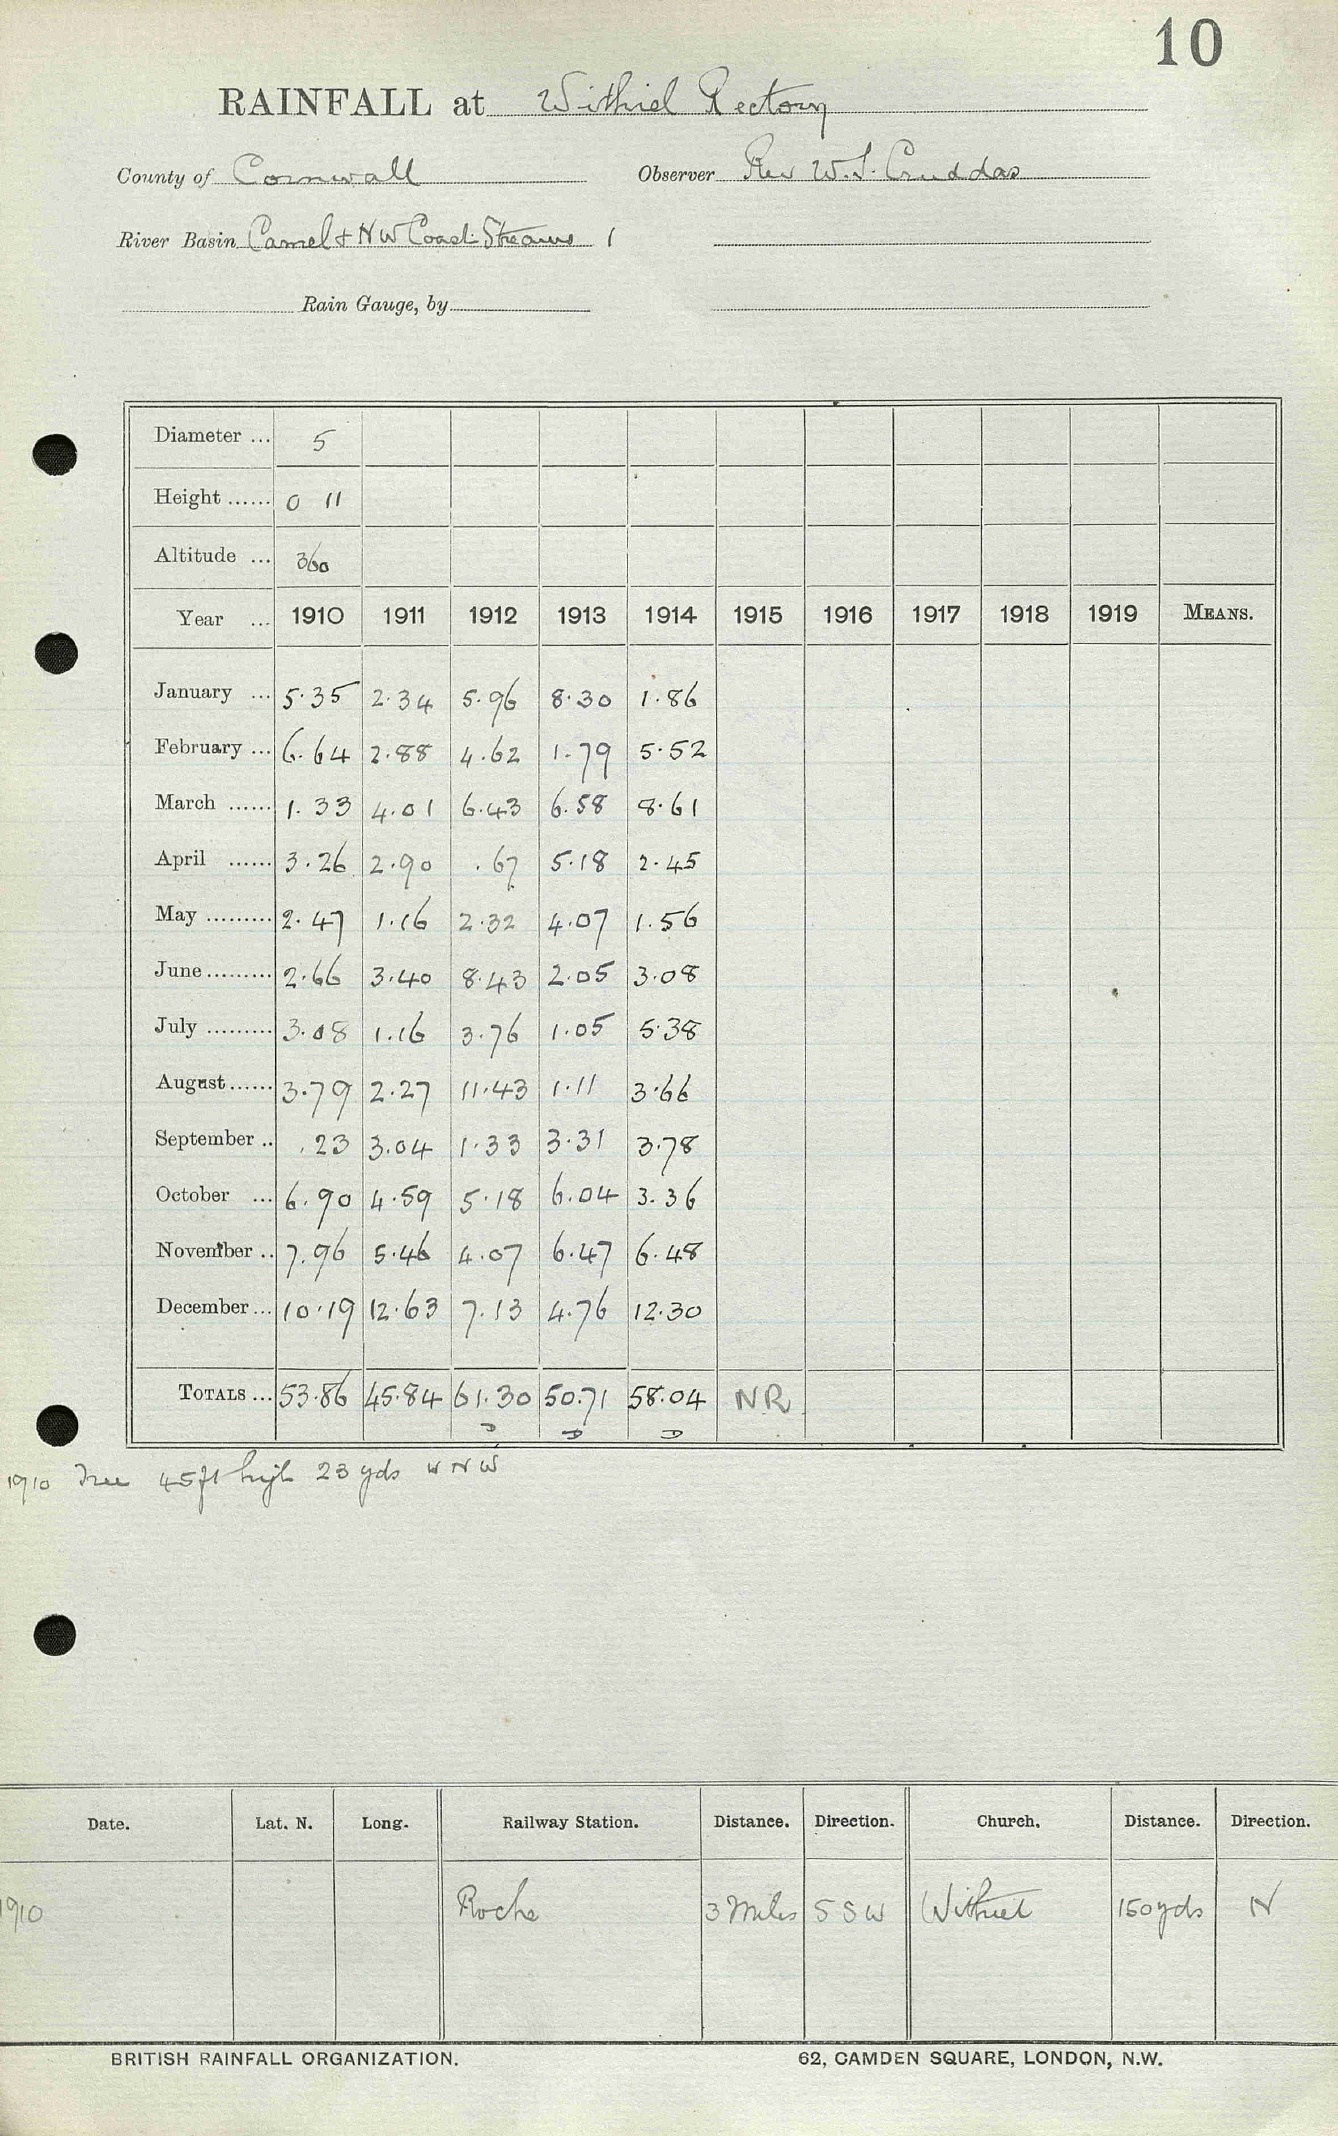 10
RAINFALL at Withiel Rectory
County of Cornwall Observer Rev W.S. Cruddas
River Basin Camel & NW Coast Streams 1
Rain Gauge, by
Diameter ... 5
Height ...... 0 11
Altitude ... 360
Year ... 1910 1911 1912 1913 1914 1915 1916 1917 1918 1919 MEANS.
January ... 5.35 2.34 5.96 8.30 1.86
February ... 6.64 2.88 4.62 1.79 5.52
March ...... 1.33 4.01 6.43 6.58 8.61
April ...... 3.26 2.90 .67 5.18 2.45
May ......... 2.47 1.16 2.32 4.07 1.56
June ......... 2.66 3.40 8.43 2.05 3.08
July ......... 3.08 1.16 3.76 1.05 5.38
August ...... 3.79 2.27 11.43 1.11 3.66
September .. .23 3.04 1.33 3.31 3.78
October ... 6.90 4.59 5.18 6.04 3.36
November .. 7.96 5.46 4.07 6.47 6.48
December ... 10.19 12.63 7.13 4.76 12.30
TOTALS ... 53.86 45.84 61.30 50.71 58.04 NR
1910 Tree 45ft high 23 yds WNW
Date. Lat. N. Long. Railway Station. Distance. Direction. Church. Distance. Direction.
1910 Roche 3 Miles SSW Withiel 150yds N
BRITISH RAINFALL ORGANIZATION. 62, CAMDEN SQUARE, LONDON, N.W.